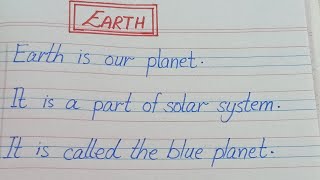 EARTH
Earth is our planet.
It is a part of solar system.
It is called the blue planet.